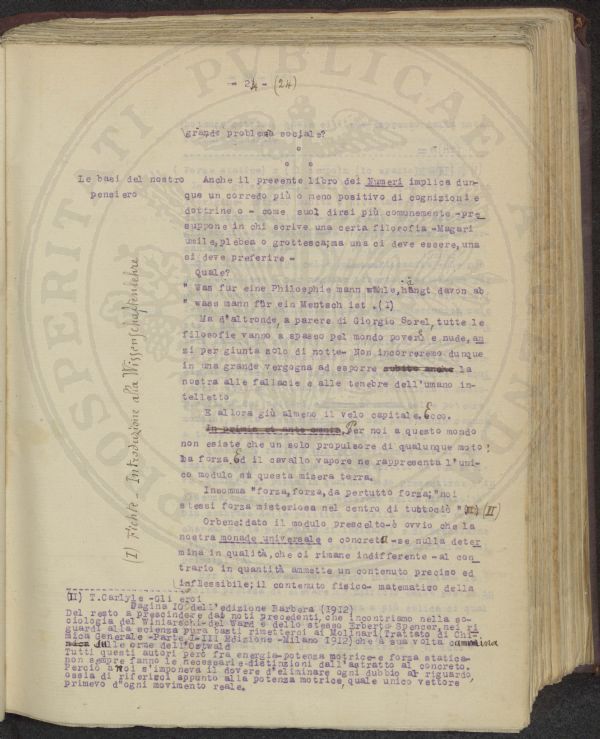 - 24 - (24)
grande problema sociale?
Le basi del nostro
pensiero
Anche il presente libro dei Numeri implica dun-
que un corredo più o meno positivo di cognizioni e
dottrine o - come suol dirsi più comunemente - pre
suppone in chi scrive una certa filosofia - Magari
umile, plebea o grottesca; ma una ci deve essere, una
si deve preferire -
Quale?
" Wan fur eine Philosphie mann wähle, hängt davon ab
" wass mann für ein Mentsch ist . (I)
Ma d'altronde, a parere di Giorgio Sorel, tutte le
filosofie vanno a spasso pel mondo povere e nude, an
zi per giunta solo di notte - Non incorreremo dunque
in una grande vergogna ad esporre subito anche la
nostra alle fallacie e alle tenebre dell'umano in-
telletto
E allora giù almeno il velo capitale. Ecco.
In primis et ante omnia, Per noi a questo mondo
non esiste che un solo propulsore di qualunque moto:
la forza, Ed il cavallo vapore ne rappresenta l'uni-
co modulo su questa misera terra.
Insomma "forza, forza, da pertutto forza; "noi
stessi forza misteriosa nel centro di tuttociò" (II)
Orbene: dato il modulo prescelto - è ovvio che la
nostra monade universale e concreta - se nulla deter
mina in qualità, che ci rimane indifferente - al con
trario in quantità ammette un contenuto preciso ed
inflessibile; il contenuto fisico- matematico della
(I) Fichte - Introduzione alla Wissenschaftenlehre
(II) T. Carlyle - Gli eroi
Pagina 10 dell'edizione Barbera (1912)
Del resto a prescindere dai noti precedenti, che incontriamo nella so-
ciologia del Winiarschi del Ward e dello stesso Erberto Spencer, nei ri
guardi alla scienza pura basti rimettersi al Molinari (Trattato di Chi-
mica Generale - Parte I-III Edizione - Milano 1912) che a sua volta cammina
sulle orme dell'Ostwald
Tutti questi autori però fra energia-potenza motrice e forza statica-
non sempre fanno le necessarie distinzioni dall'astratto al concreto.
Perciò a noi s'imponeva il dovere d'eliminare ogni dubbio al riguardo,
ossia di riferirci appunto alla potenza motrice, quale unico vettore
primevo d'ogni movimento reale.